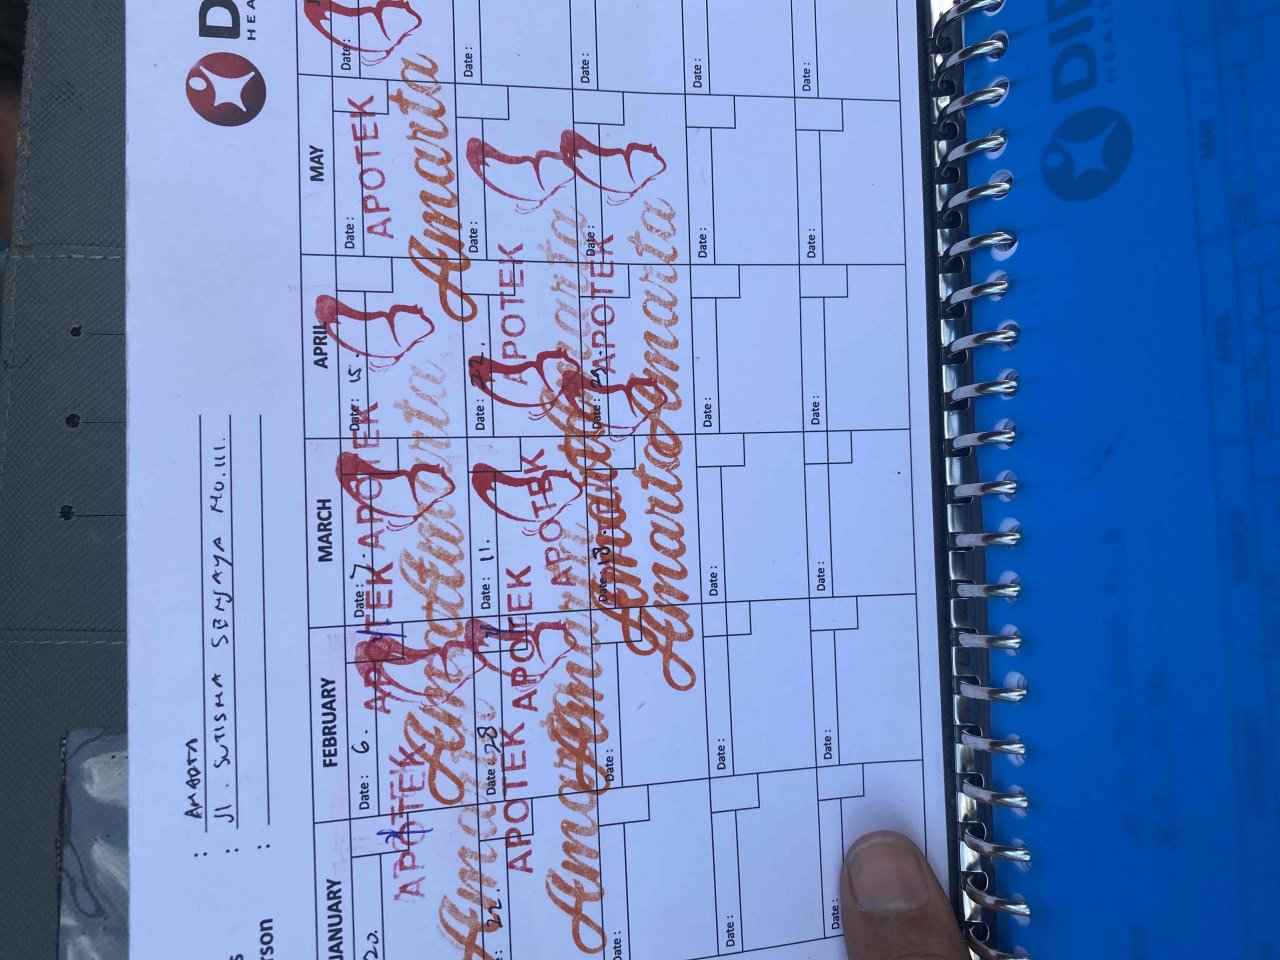 DI
HEA
: AMARTA
: Jl. SUTISNA SENJAYA NO.111.
:
s
rson
ANUARY
FEBRUARY
MARCH
APRIL
MAY
20.
Date : 6.
Date : 7.
Date : 15.
Date :
Date :
APOTEK
APOTEK
APOTEK
APOTEK
APOTEK
Amarta
Amarta
Amarta
Amarta
: 22.
Date : 28.
Date : 11.
Date : 22.
Date :
Date :
APOTEK
APOTEK
APOTEK
APOTEK
Amarta
Amarta
Amarta
Amarta
Date :
Date :
Date : 18.
Date : 29.
Date :
Date :
APOTEK
Amarta
Amarta
Date :
Date :
Date :
Date :
Date :
Date :
Date :
Date :
Date :
Date :
Date :
Date :